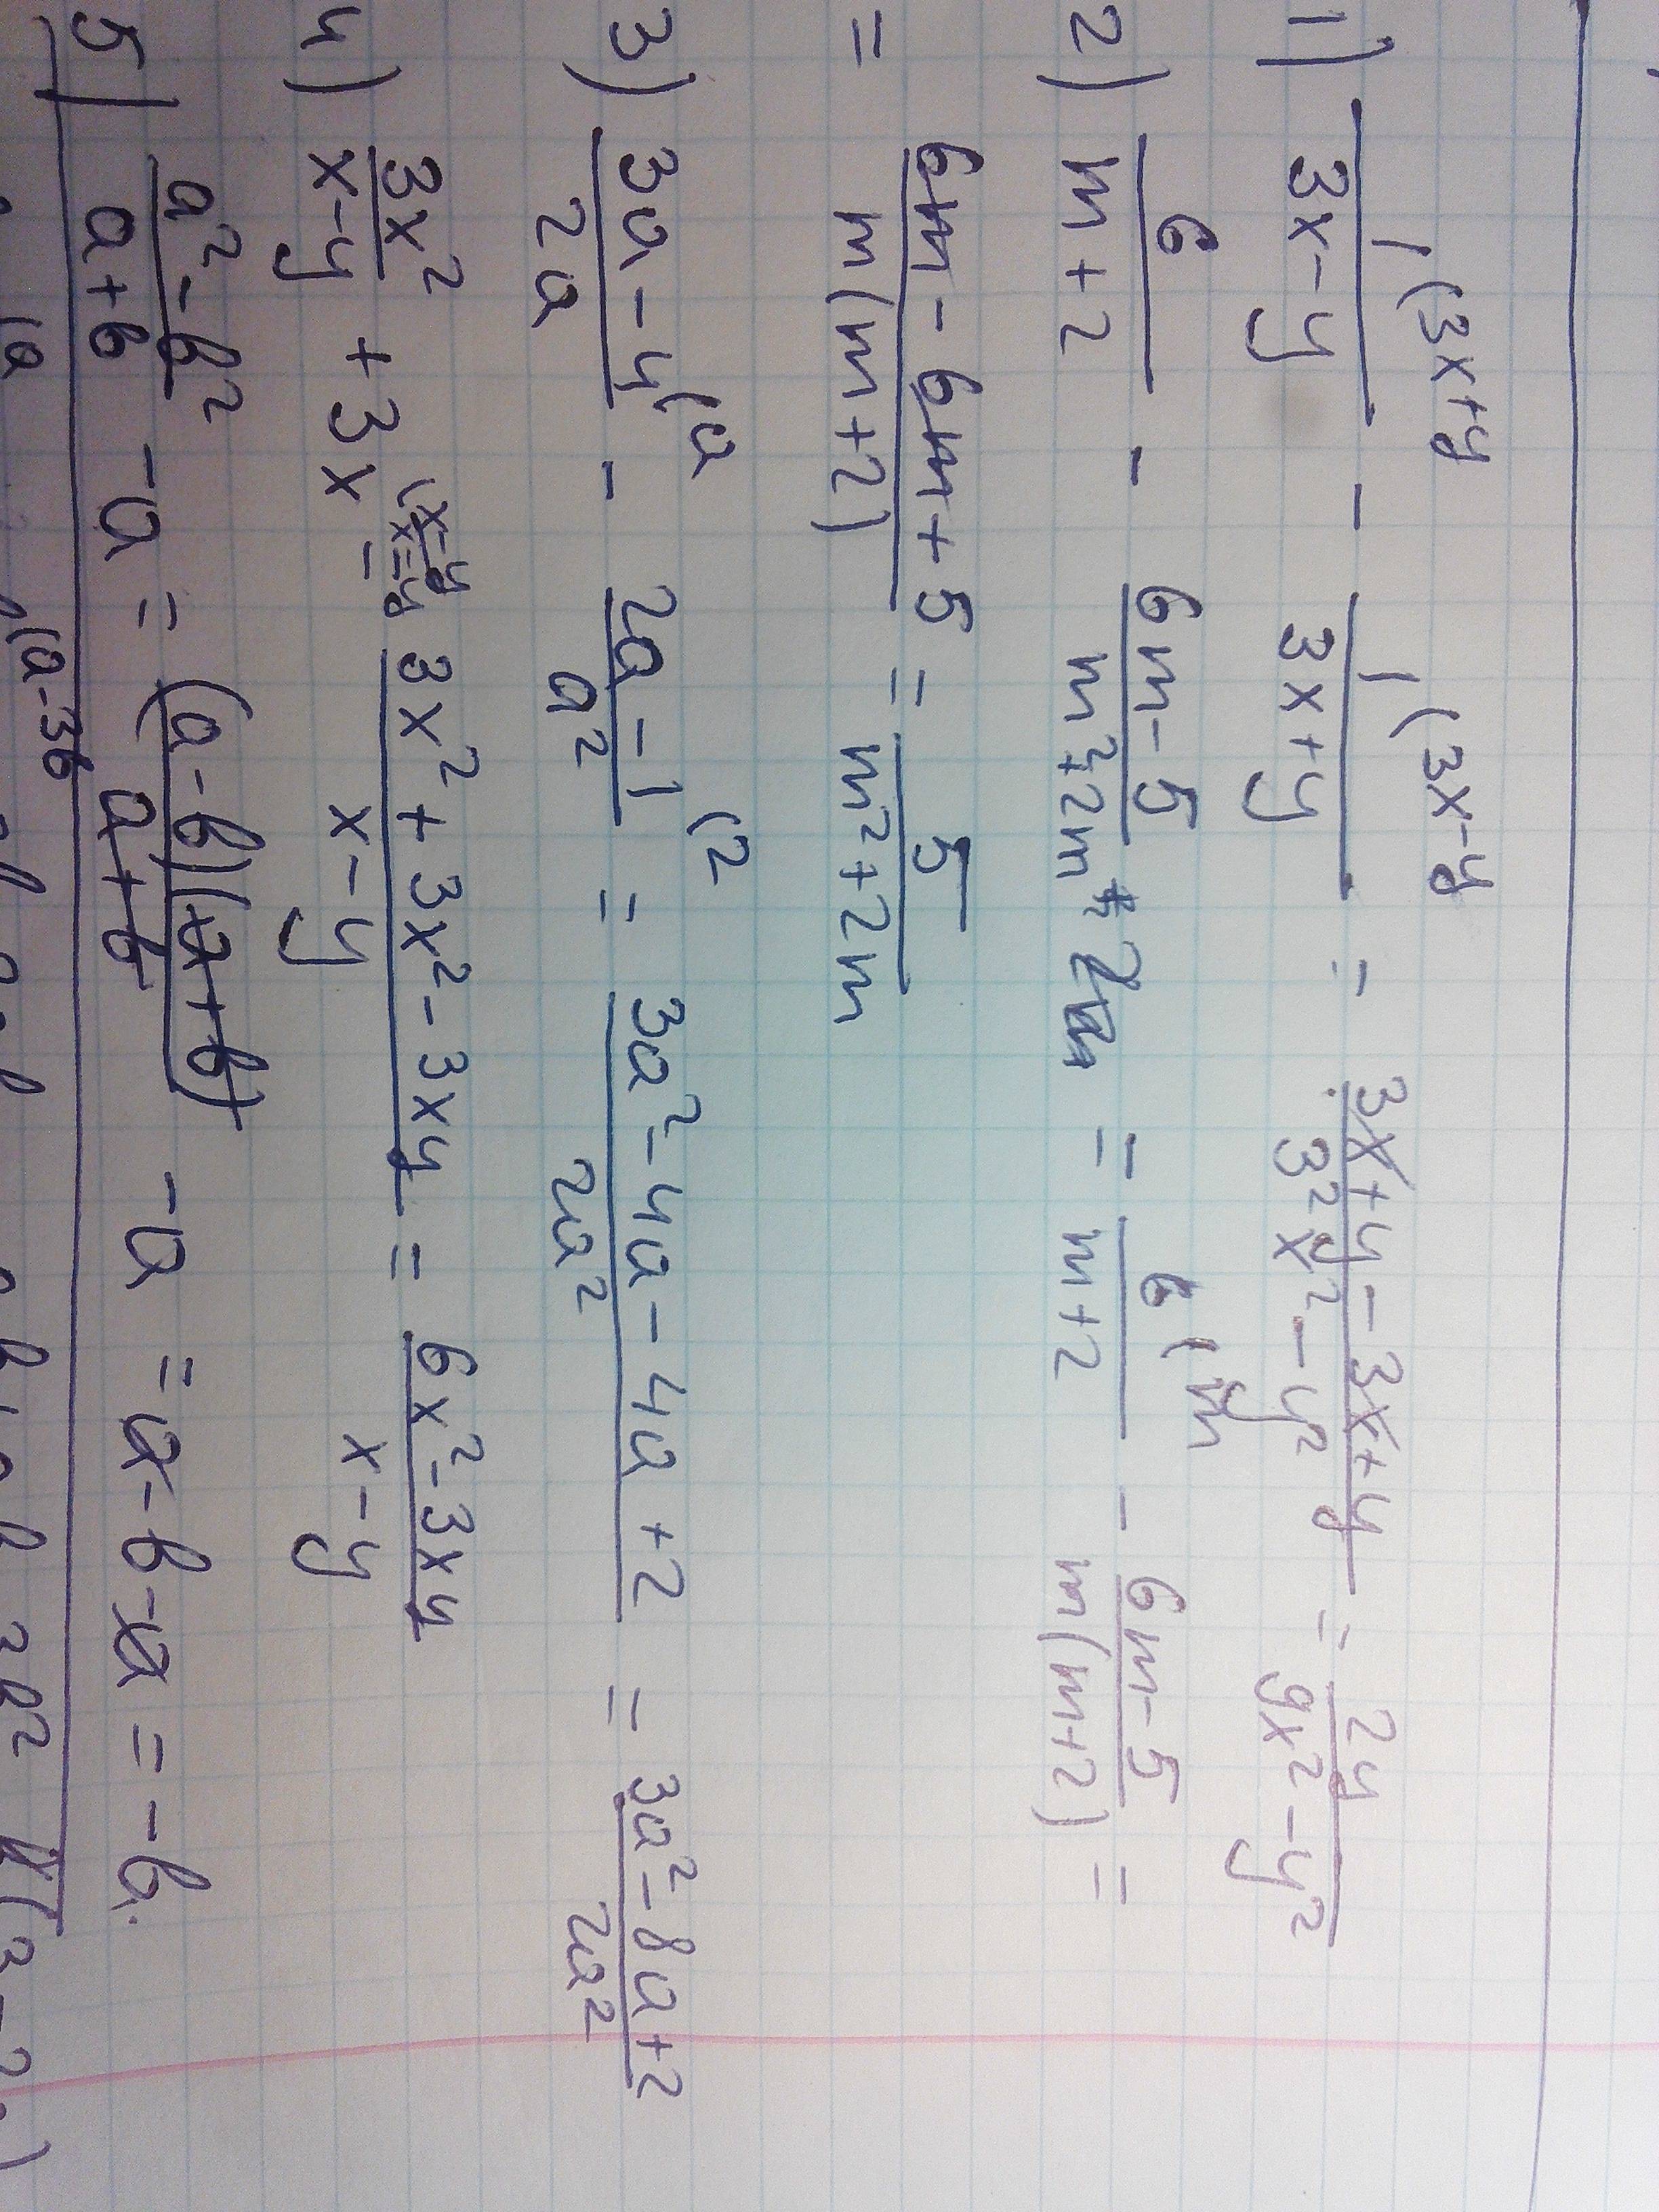 1) 1(3x+y / 3x-y - 1(3x-y / 3x+y = 3x+y-3x+y / 3²x²-y² = 2y / 9x²-y²
2) 6 / m+2 - 6m-5 / m²+2m = 6(m / m+2 - 6m-5 / m(m+2) =
= 6m-6m+5 / m(m+2) = 5 / m²+2m
3) 3a-4(a / 2a - 2a-1(2 / a² = 3a²-4a-4a+2 / 2a² = 3a²-8a+2 / 2a²
4) 3x² / x-y + 3x(x-y = 3x²+3x²-3xy / x-y = 6x²-3xy / x-y
5) a²-b² / a+b -a = (a-b)(a+b) / a+b -a = a-b-a = -b.